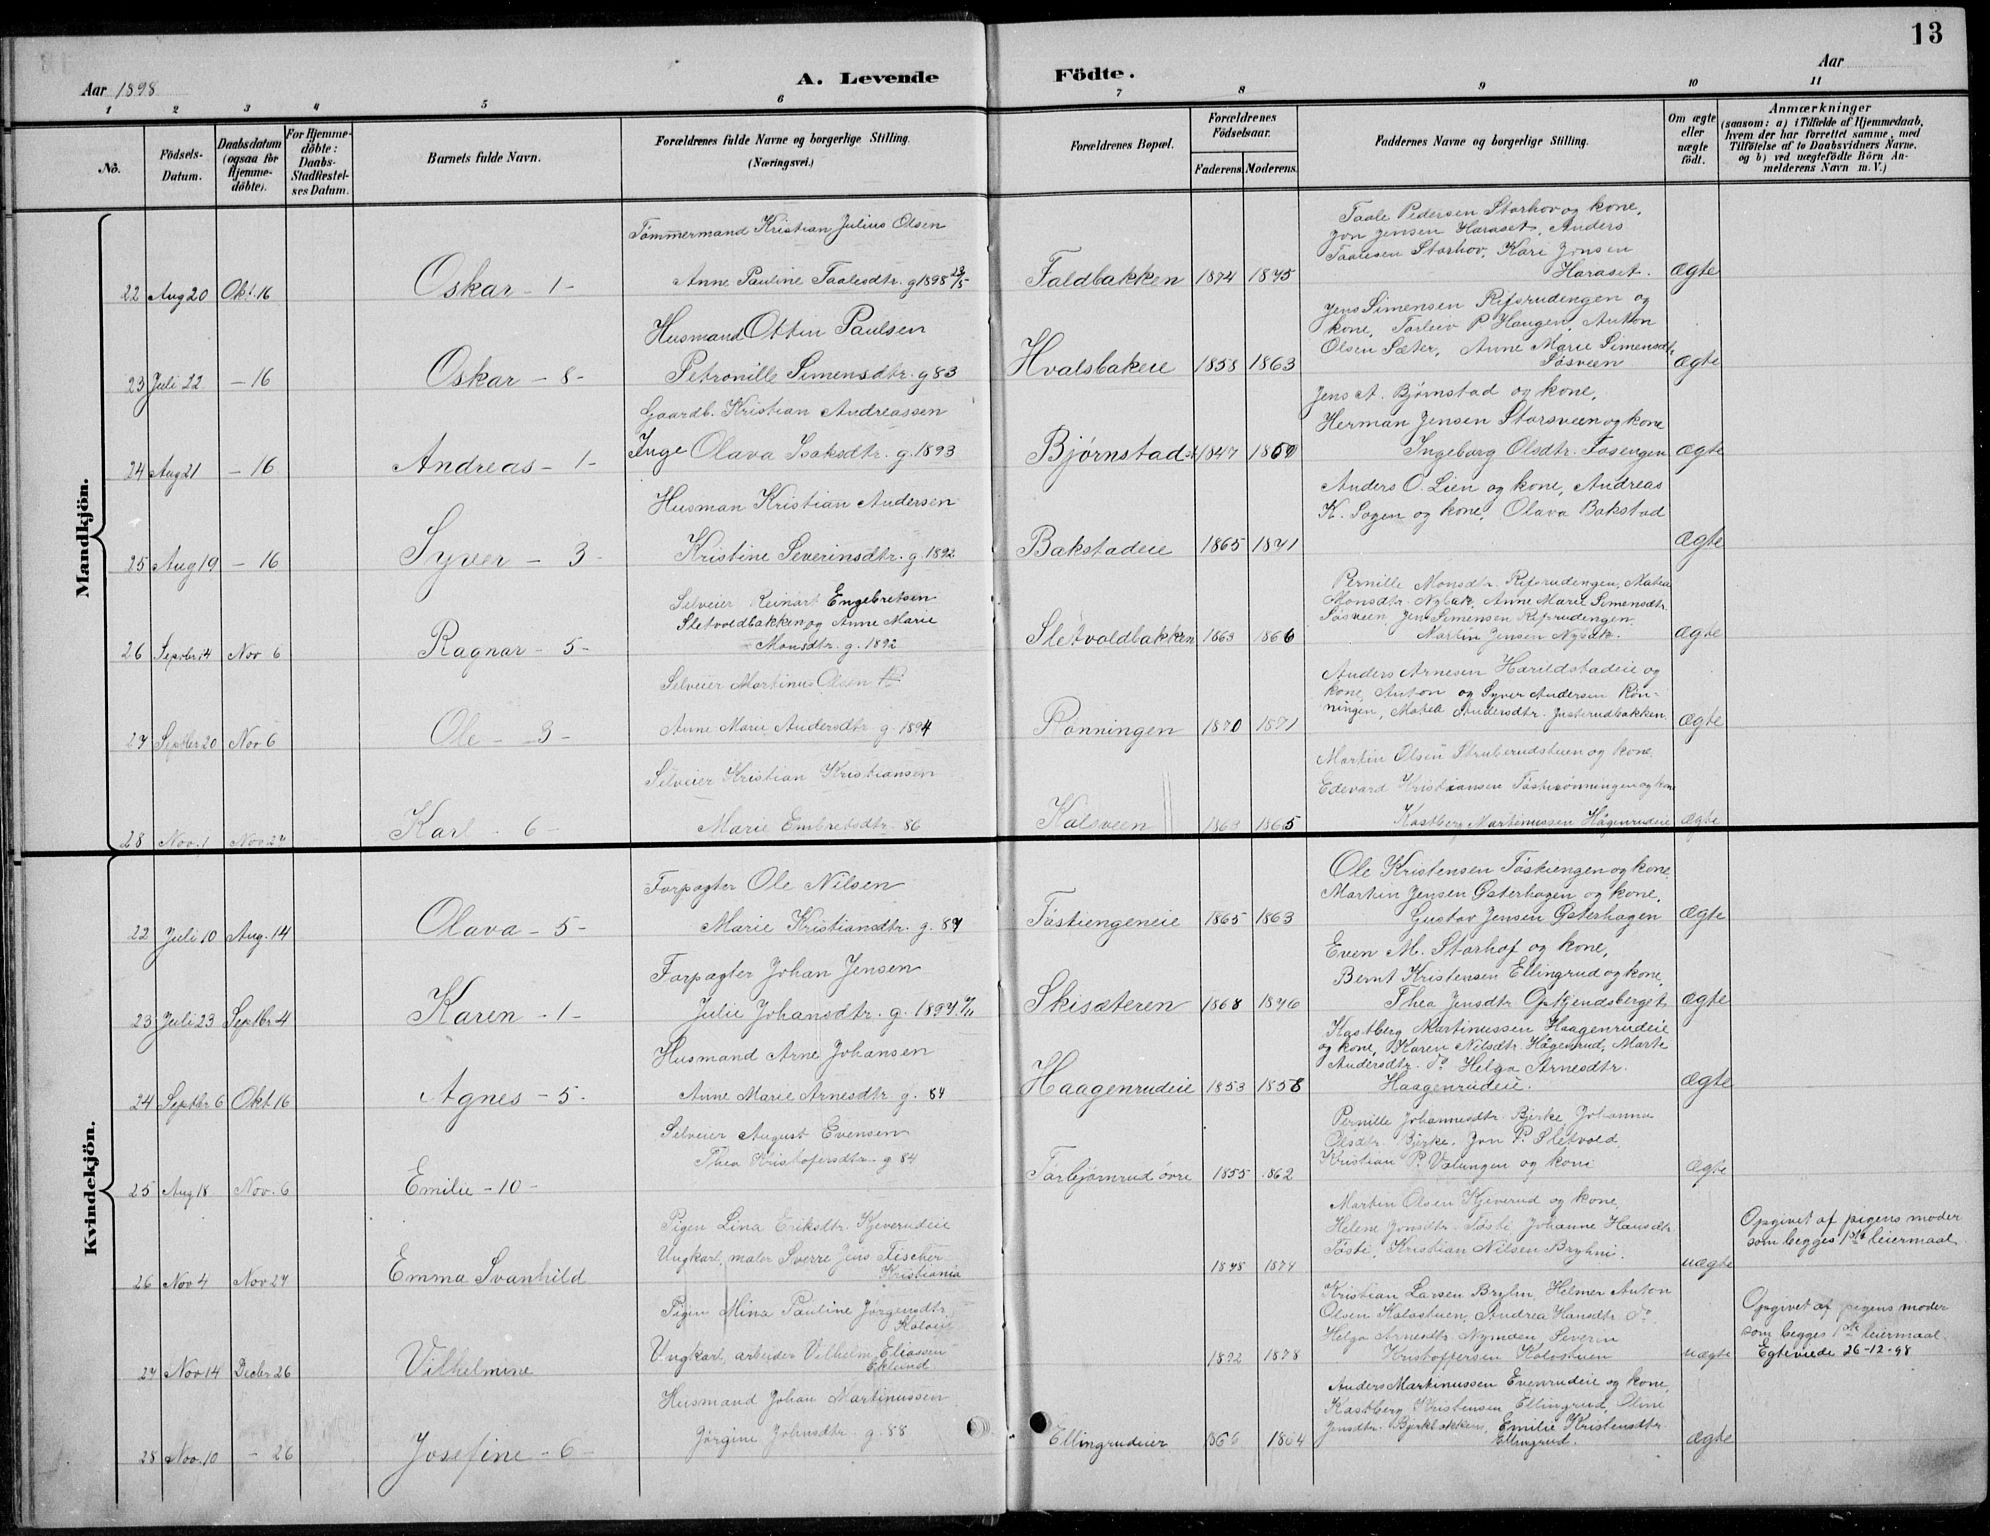 13
Aar 1898
A. Levende
Födte.
Aar
1 2 3 4 5 6 7 8 9 10 11
No.
Födsels-Datum.
Daabsdatum (ogsaa for Hjemme-döbte).
For Hjemme-döbte: Daabs-Stadfæstel-ses Datum.
Barnets fulde Navn.
Forældrenes fulde Navne og borgerlige Stilling.
(Næringsvei.)
Forældrenes Bopæl.
Forældrenes Födselsaar.
Faderens. Moderens.
Faddernes Navne og borgerlige Stilling.
Om ægte eller uægte födt.
Anmærkninger
(saasom: a) i Tilfælde af Hjemmedaab,
hvem der har forrettet samme, med
Tilföielse af to Daabsvidners Navne,
og b) ved uægtefödte Börn An-
melderens Navn m. V.)
Mandkjön.
Tømmermand Kristian Julius Olsen
Taale Pedersen Storhov og kone,
Jon Jensen Haraset, Anders
Taalesen Storhov, Kari Jonsen
Haraset.
22 Aug 20 Okt. 16 Oskar - 1 - Anne Pauline Taalesdtr. g 1898 23/5 Faldbakken 1874 1875 Ægte
Husmand Ottin Paulsen
Jens Simensen Rifsrudengen og
kone, Torleiv P Haugen, Anton
Olsen Sæter, Anne Marie Simensdtr.
Tøsveen
23 Juli 22 - 16 Oskar - 8 - Petronille Simensdtr. g 83 Hvalsbakeie 1858 1863 Ægte
Gaardb. Kristian Andreassen
Jens A. Bjørnstad og kone,
Herman Jensen Storsveen og kone
Ingeborg Olsdtr. Fosengen
24 Aug 21 - 16 Andreas - 1 - Inge Olava Isaksdtr. g. 1893 Bjørnstad 1847 Ægte
Husman Kristian Andersen
Anders O. Lien og kone, Andreas
K. Sogen og kone, Olava Bakstad
25 Aug 19 - 16 Syver - 3 - Kristine Severinsdtr. g. 1892 Bakstadeie 1865 1871 Ægte
Selveier Reinart Engebretsen
Sletvoldbakken og Anne Marie
Monsdtr. g. 1892
Pernille Monsdtr. Rifsrudengen, Mathea
Monsdtr. Nybak, Anne Marie Simensdtr.
Tøsveen, Jens Simensen Rifsrudengen
Martin Jensen Nybak.
26 Septbr 14 Nov 6 Ragnar - 5 - Sletvoldbakken 1863 1866 Ægte
Selveier Martinus Olsen
Anders Arnesen Harildstadeie og
kone, Anton og Syver Andersen Røn-
ningen, Mathea Andersdtr. Justerudbakken.
27 Septbr 20 Nov 6 Ole - 3 - Anne Marie Andersdtr. g. 1894 Rønningen 1870 1871 Ægte
Selveier Kristian Kristiansen
Martin Olsen Struberudstuen og kone,
Edevard Kristiansen Tøsti-rønningen og kone
Kastberg Martinussen Hågenrudeie
28 Nov. 1 Nov 27 Karl - 6 - Marie Embretsdtr. 86 Kalsveen 1863 1865 Ægte
Kvindekjön.
Forpagter Ole Nilsen
Ole Kristensen Tøstiengen og kone,
Martin Jensen Østerhagen og kone,
Gustav Jensen Østerhagen
22 Juli 10 Aug. 14 Olava - 5 - Marie Kristiansdtr. g. 87 Tøstiengeneie 1865 1863 Ægte
Forpagter Johan Jensen
Even M. Storhof og kone,
Bernt Kristensen Ellingrud og kone,
Thea Jensdtr. Opkjendsberget
23 Juli 23 Septbr 4 Karen - 1 - Julie Johansdtr. g. 1897 7/11 Skisæteren 1868 1876 Ægte
Husmand Arne Johansen
Kastberg Martinussen Haagenrudeie
og kone, Karen Nilsdtr. Hågenrud, Marte
Andersdtr. do Helga Arnesdtr.
Haagenrudeie.
24 Septbr 6 Okt 16 Agnes - 5 - Anne Marie Arnesdtr. g. 84 Haagenrudeie 1853 1858 Ægte
Selveier August Evensen
Thea Kristofersdtr. g 84
Pernille Johannesdtr. Bjerke, Johanna
Olsdtr. Bjerke, Jon P. Sletvold,
Kristian P. Volungen og kone
25 Aug 18 Nov. 6 Emilie - 10 - Torbjørnrud øvre 1855 1862 Ægte
Pigen Lina Eriksdtr. Kjeverudeie
Ungkarl, maler Sverre Jens Fischer
Kristiania
Martin Olsen Kjeverud og kone,
Helene Jonsdtr. Tøsti, Johanne Hansdtr.
Tøsti, Kristian Nilsen Bryhni.
26 Nov 4 Nov 27 Emma Svanhild 1878 1874 uægte
Opgivet af pigens moder
som begges 1ste leiermaal
Pigen Mina Pauline Jørgensdtr.
Ungkarl, arbeider Vilhelm Eliassen
Eklund
Kristian Larsen Bryhn, Helmer Anton
Olsen Kolostuen, Andrea Hansdtr. do.
Helga Arnesdtr. Nymoen, Severin
Kristoffersen Kolostuen
27 Nov 14 Decbr 26 Vilhelmine 1872 1878 uægte
Opgivet af pigens moder
som begges 1ste leiermaal
Egteviede 26-12-98
Husmand Johan Martinussen
Jørgine Johnsdtr. g. 88
Anders Martinussen Evenrudeie og kone,
Kastberg Kristensen Ellingrud, Oline
Jensdtr. Bjerkbakken, Emilie Kristensdtr.
Ellingrud.
28 Nov. 10 - 26 Josefine - 6 - Ellingrudeier 866 1864 Ægte